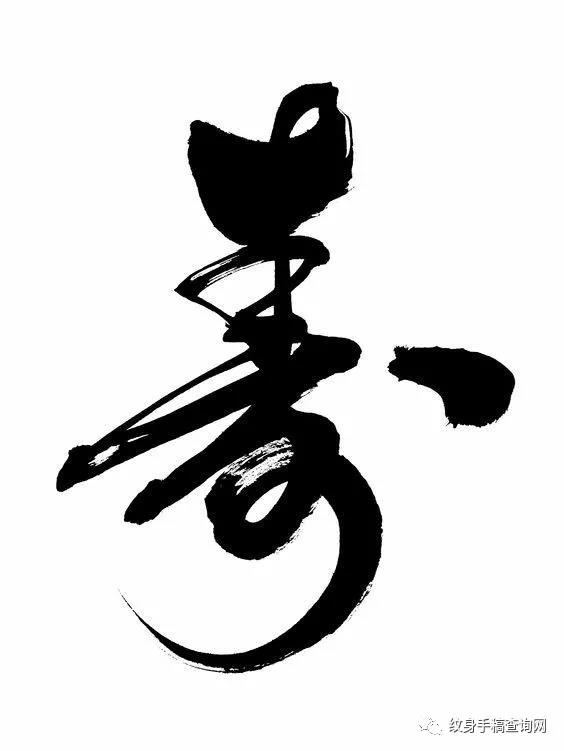 寿
纹身手稿查询网